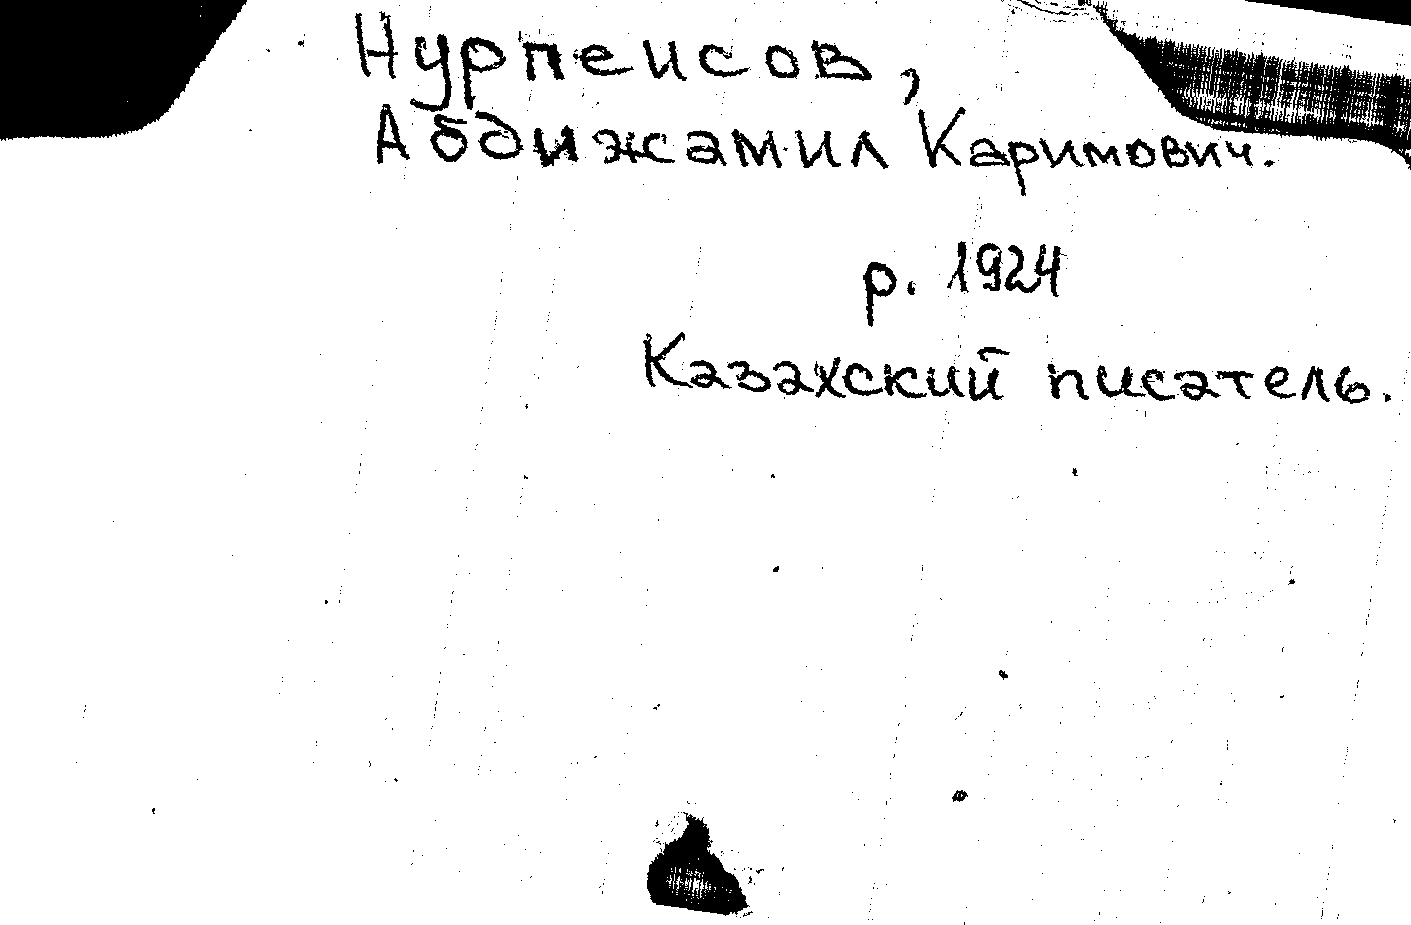 Нурпеисов,
Абдижамил Каримович.
р. 1924
Казахский писатель.